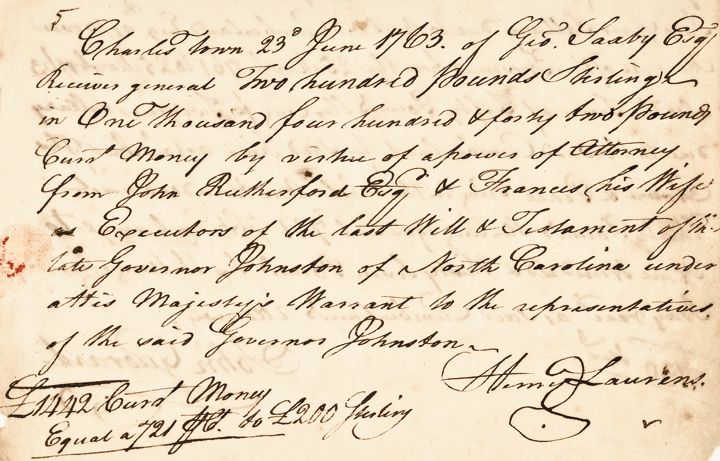 5
Charles town 23d June 1763. of Geo. Saxby Esqr
Receiver general Two hundred Pounds Sterling
in One thousand four hundred & forty two Pounds
Currt Money by virtue of a power of Attorney
from John Rutherford Esqr & Frances his Wife
Executors of the last Will & Testament of the
late Governor Johnston of North Carolina under
a His Majesty's Warrant to the representatives
of the said Governor Johnston.
Henry Laurens.
£1442 Currt Money
Equal a 721 to £200 Sterling